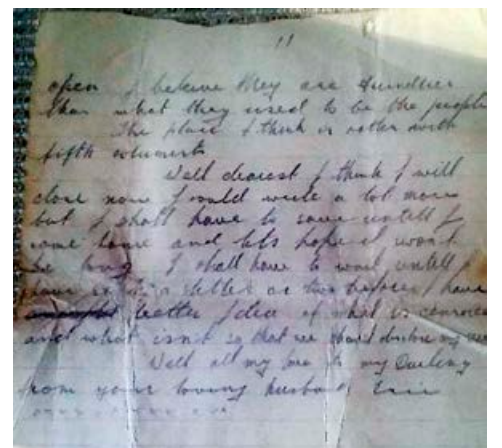 11
open I believe they are friendlier
than what they used to be the people
The place I think is rotten with
fifth columnists
Well dearest I think I will
close now I could write a lot more
but I shall have to save untill I
come home and lets hope it wont
be long I shall have to wait untill I
have a letter or two before I have
better Idea of what is censored
and what isn't so that we
Well all my love to my Darling
from your loving husband Eric